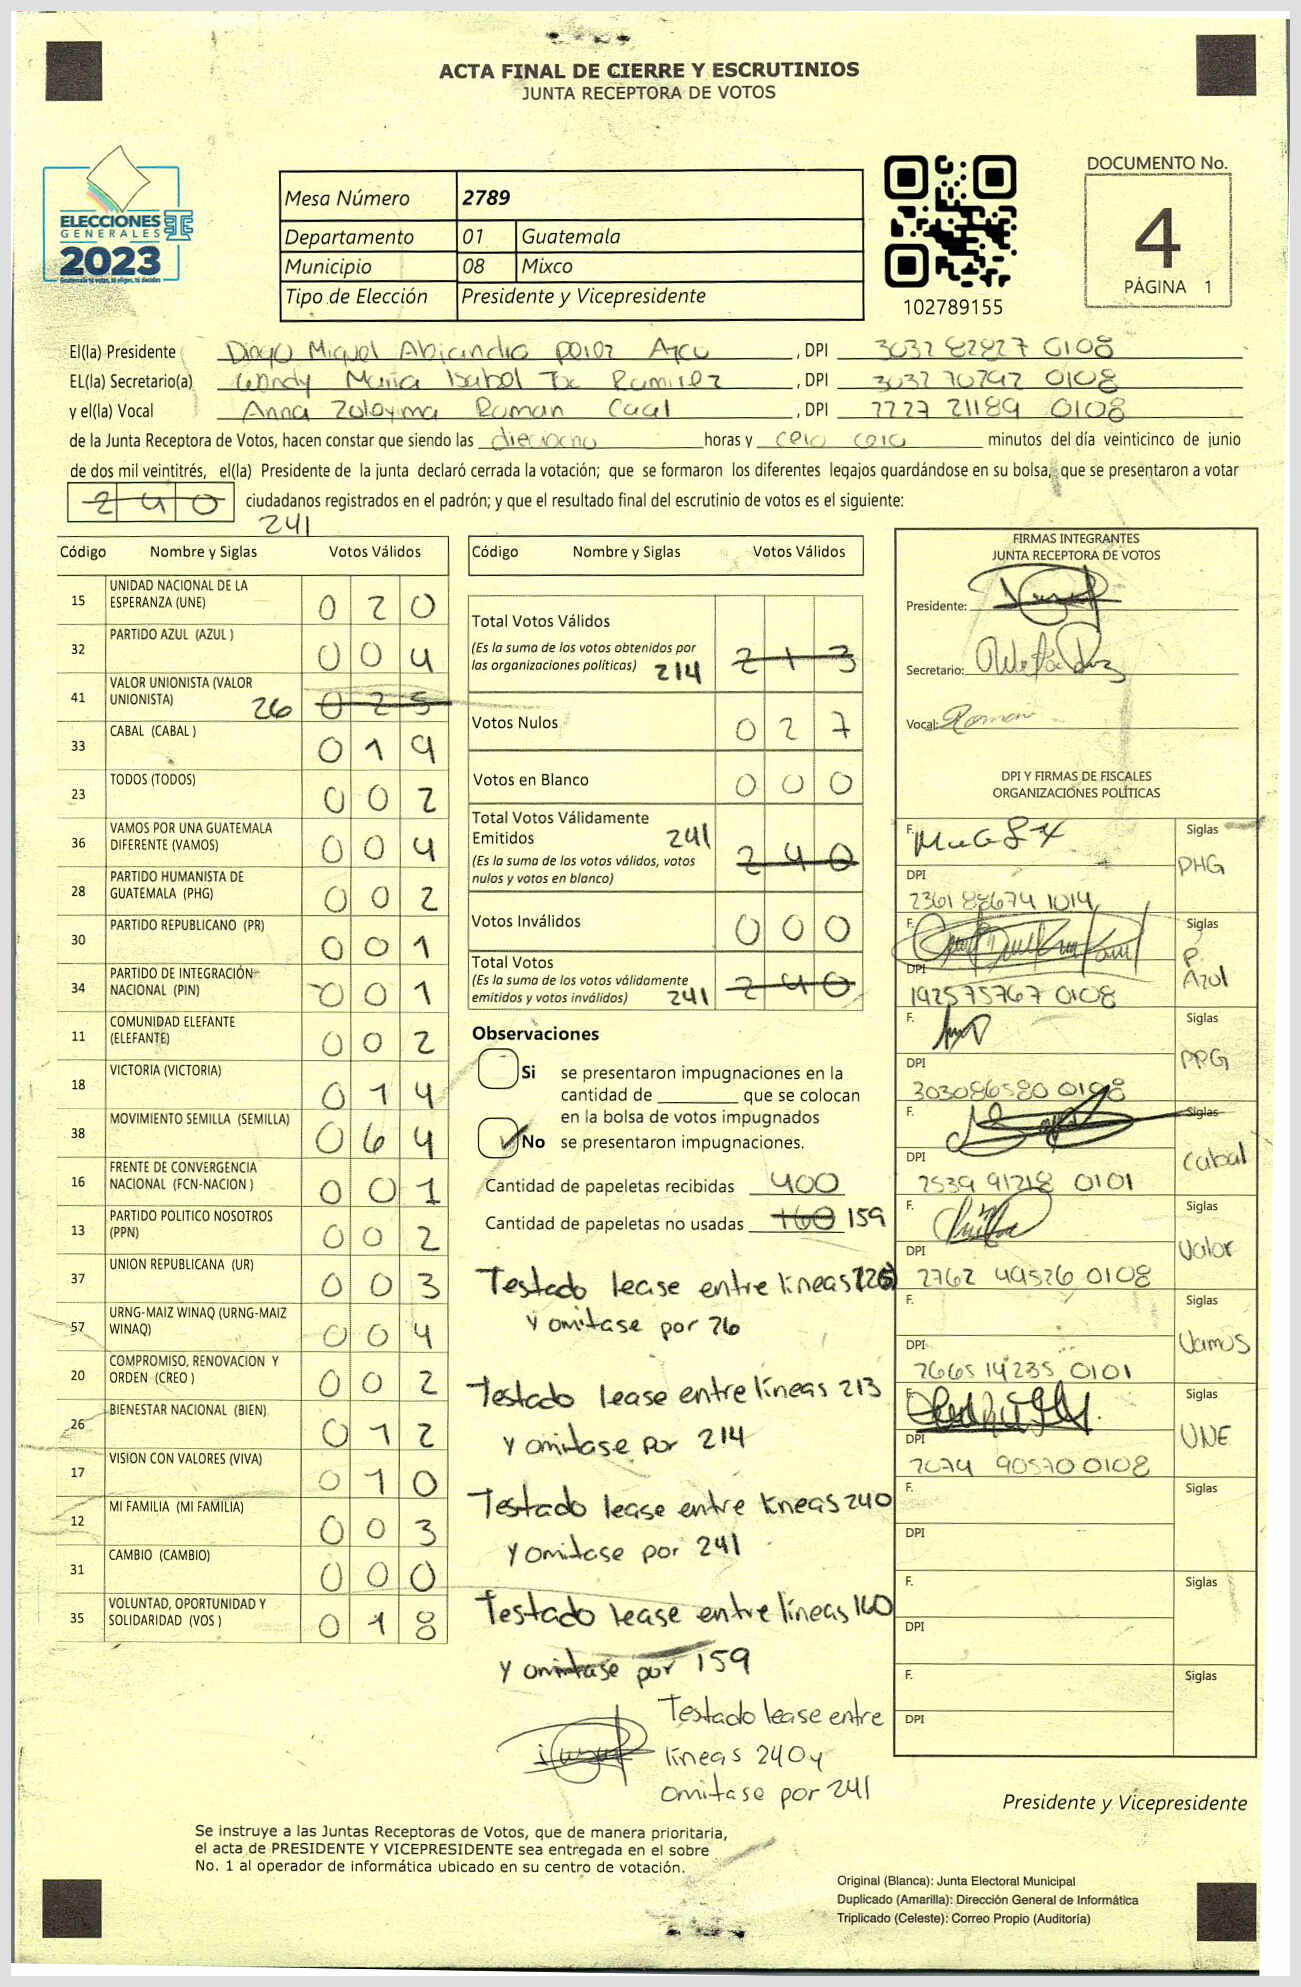 ACTA FINAL DE CIERRE Y ESCRUTINIOS
JUNTA RECEPTORA DE VOTOS
ELECCIONES
GENERALES
2023
Mesa Número 2789
Departamento 01 Guatemala
Municipio 08 Mixco
Tipo de Elección Presidente y Vicepresidente
102789155
DOCUMENTO No.
4
PÁGINA 1
El(la) Presidente Diego Miguel , DPI 3037 82827 0108
EL(la) Secretario(a) Maria Isabel Ramirez , DPI 3037 70792 0108
y el(la) Vocal Anna Roman Caal , DPI 2227 21189 0108
de la Junta Receptora de Votos, hacen constar que siendo las dieciocho horas y cero cero minutos del día veinticinco de junio
de dos mil veintitrés, el(la) Presidente de la junta declaró cerrada la votación; que se formaron los diferentes legajos guardándose en su bolsa, que se presentaron a votar
240 ciudadanos registrados en el padrón; y que el resultado final del escrutinio de votos es el siguiente:
241
Código Nombre y Siglas Votos Válidos
15 UNIDAD NACIONAL DE LA ESPERANZA (UNE) 0 2 0
32 PARTIDO AZUL (AZUL ) 0 0 4
41 VALOR UNIONISTA (VALOR UNIONISTA) 26 0 2 5
33 CABAL (CABAL ) 0 1 9
23 TODOS (TODOS) 0 0 2
36 VAMOS POR UNA GUATEMALA DIFERENTE (VAMOS) 0 0 4
28 PARTIDO HUMANISTA DE GUATEMALA (PHG) 0 0 2
30 PARTIDO REPUBLICANO (PR) 0 0 1
34 PARTIDO DE INTEGRACIÓN NACIONAL (PIN) 0 0 1
11 COMUNIDAD ELEFANTE (ELEFANTE) 0 0 2
18 VICTORIA (VICTORIA) 0 1 4
38 MOVIMIENTO SEMILLA (SEMILLA) 0 6 4
16 FRENTE DE CONVERGENCIA NACIONAL (FCN-NACION ) 0 0 1
13 PARTIDO POLITICO NOSOTROS (PPN) 0 0 2
37 UNION REPUBLICANA (UR) 0 0 3
57 URNG-MAIZ WINAQ (URNG-MAIZ WINAQ) 0 0 4
20 COMPROMISO, RENOVACION Y ORDEN (CREO ) 0 0 2
26 BIENESTAR NACIONAL (BIEN) 0 1 2
17 VISION CON VALORES (VIVA) 0 1 0
12 MI FAMILIA (MI FAMILIA) 0 0 3
31 CAMBIO (CAMBIO) 0 0 0
35 VOLUNTAD, OPORTUNIDAD Y SOLIDARIDAD (VOS ) 0 1 8
Código Nombre y Siglas Votos Válidos
Total Votos Válidos
(Es la suma de los votos obtenidos por
las organizaciones políticas) 214 2 1 3
Votos Nulos 0 2 7
Votos en Blanco 0 0 0
Total Votos Válidamente
Emitidos 241
(Es la suma de los votos válidos, votos
nulos y votos en blanco) 2 4 0
Votos Inválidos 0 0 0
Total Votos
(Es la suma de los votos válidamente
emitidos y votos inválidos) 241 2 4 0
Observaciones
Si se presentaron impugnaciones en la
cantidad de ________ que se colocan
en la bolsa de votos impugnados
No se presentaron impugnaciones.
Cantidad de papeletas recibidas 400
Cantidad de papeletas no usadas 160 159
Testado lease entre lineas
y omitase por 26
Testado lease entre líneas 213
y omitase por 214
Testado lease entre lineas 240
y omitase por 241
Testado lease entre líneas 160
y omitase por 159
Testado lease entre
líneas 240 y
omitase por 241
FIRMAS INTEGRANTES
JUNTA RECEPTORA DE VOTOS
Presidente:
Secretario:
Vocal: Roman
DPI Y FIRMAS DE FISCALES
ORGANIZACIONES POLÍTICAS
F. Siglas PHG
DPI 2361 88674 1014
F. Siglas P. Azul
DPI 192575767 0108
F. Siglas PPG
DPI 303086580 0108
F. Siglas Cabal
DPI 2539 91218 0101
F. Siglas Valor
DPI 2762 49526 0108
F. Siglas Vamos
DPI 2665 14235 0101
F. Siglas UNE
DPI 2074 90570 0108
F. Siglas
DPI
F. Siglas
DPI
F. Siglas
DPI
Presidente y Vicepresidente
Se instruye a las Juntas Receptoras de Votos, que de manera prioritaria,
el acta de PRESIDENTE Y VICEPRESIDENTE sea entregada en el sobre
No. 1 al operador de informática ubicado en su centro de votación.
Original (Blanca): Junta Electoral Municipal
Duplicado (Amarilla): Dirección General de Informática
Triplicado (Celeste): Correo Propio (Auditoría)